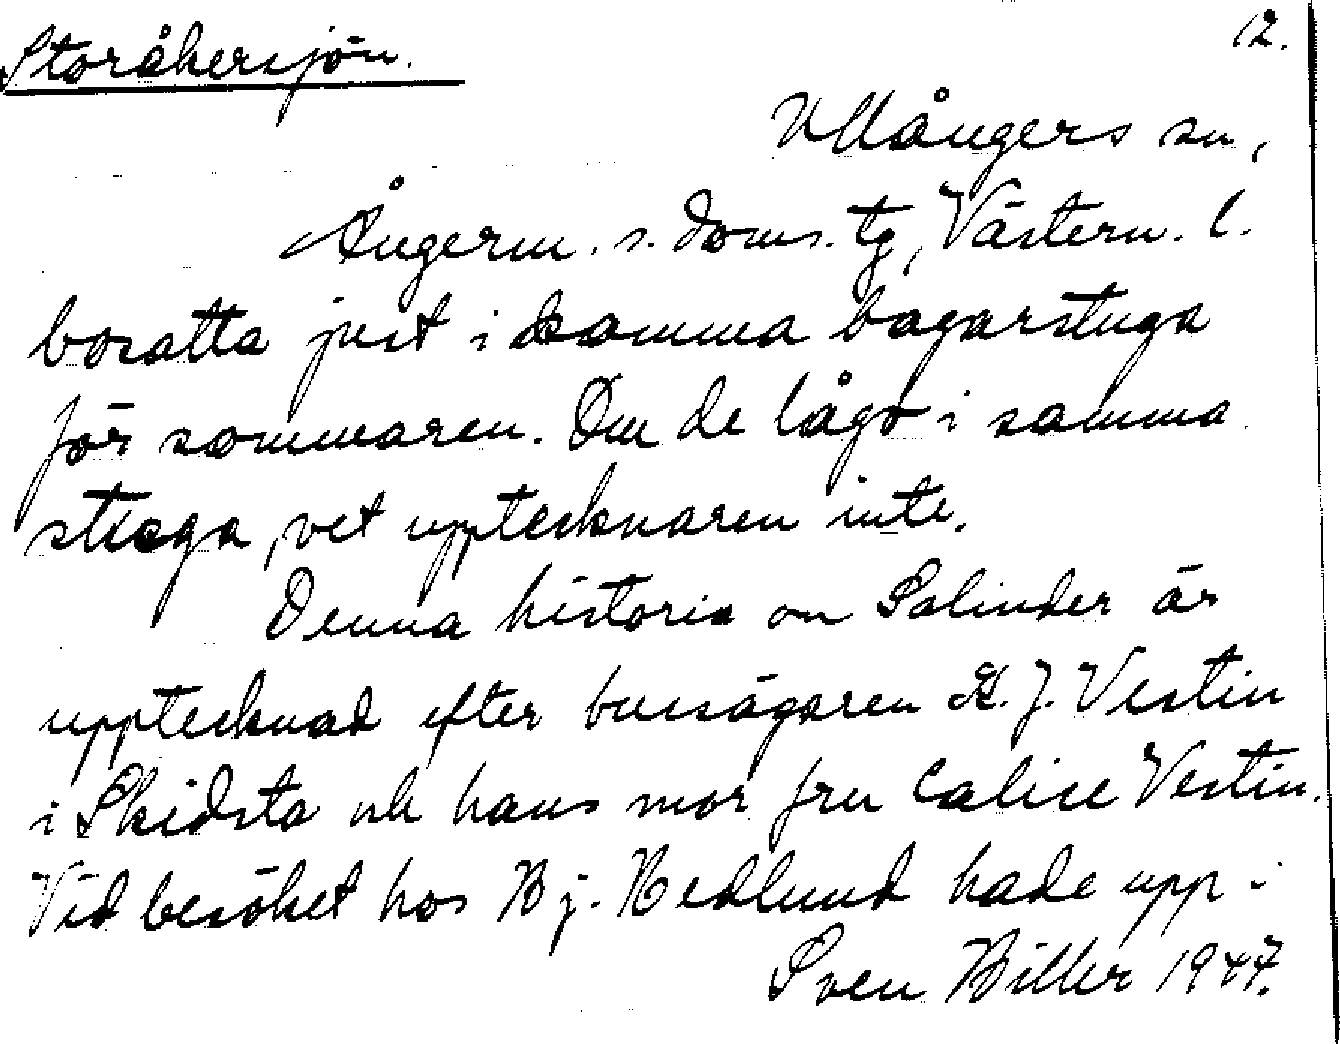 Storåkersjön.
12.
Ullångers sn,
Ångerm. s. doms. tg, Västern. l.
bosatta just i samma bagarstuga
för sommaren. Om de lågo i samma
stuga, vet upptecknaren inte.
Denna historia om Salinder är
upptecknad efter bussägaren K. J. Vestin
i Skidsta och hans mor fru Calise Vestin.
Vid besöket hos Bj. Hedlund hade upp-
Sven Biller 1947.